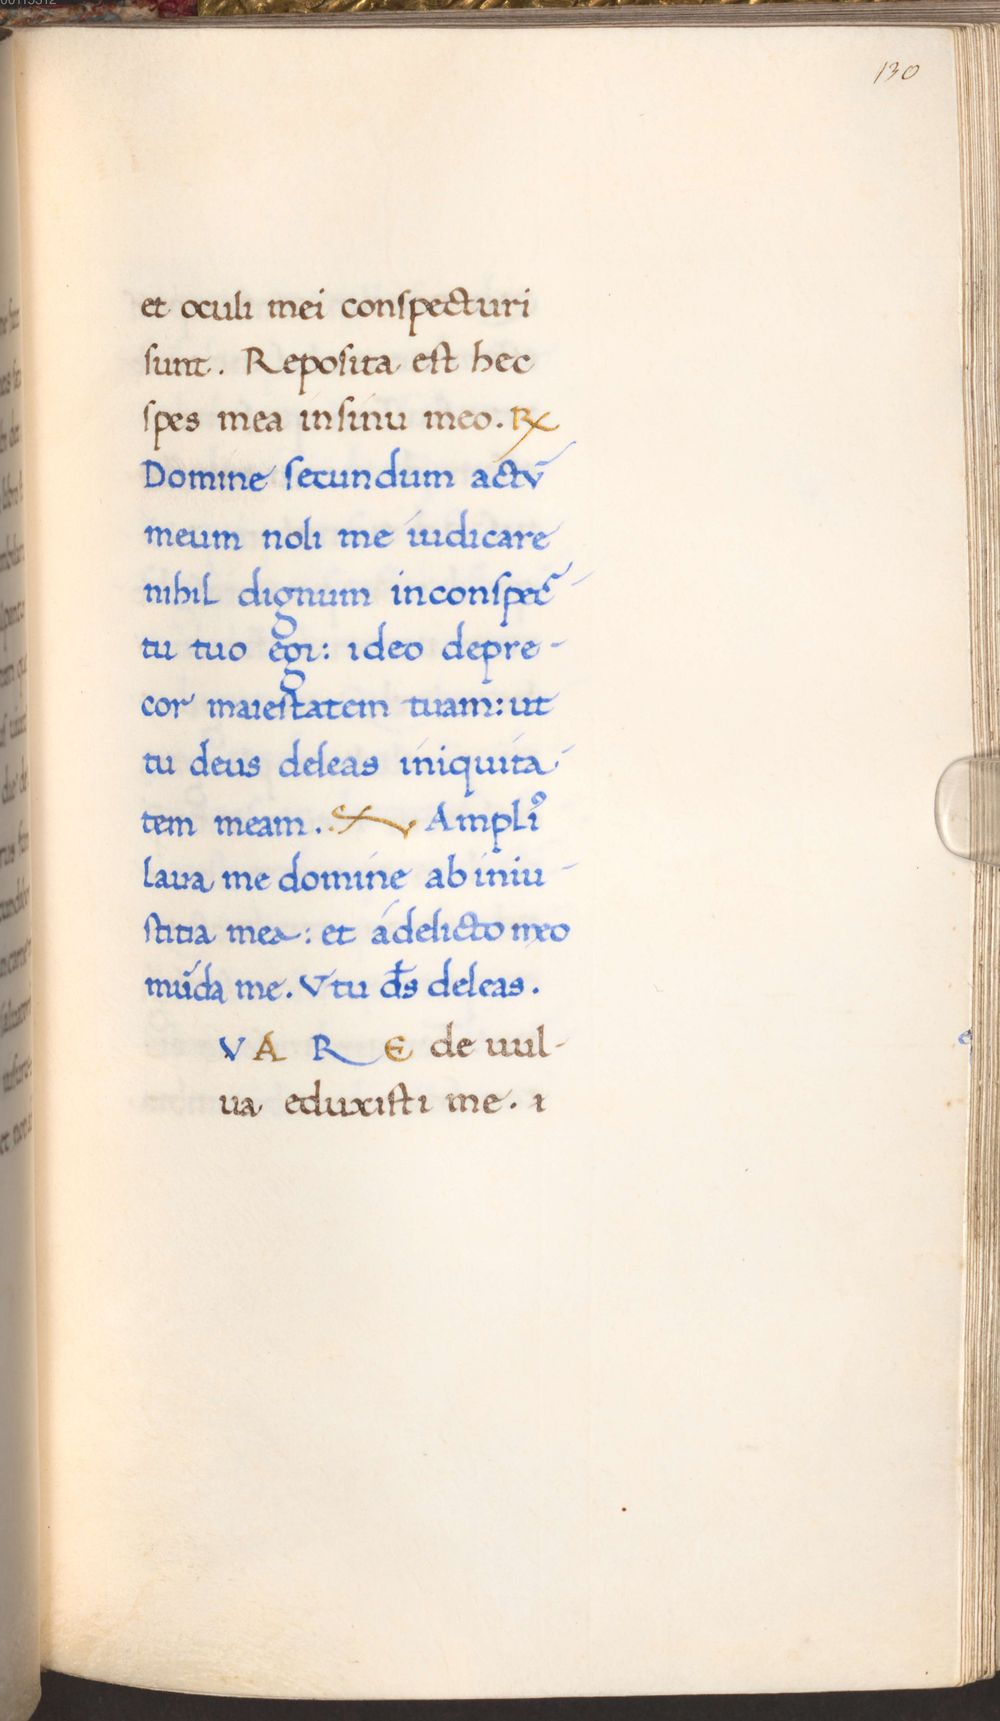 130
et oculi mei conspecturi
sunt. Reposita est hec
spes mea in sinu meo. ℟
Domine secundum actū
meum noli me iudicare
nihil dignum in conspec
tu tuo egi: ideo depre-
cor maiestatem tuam: ut
tu deus deleas iniquita
tem meam. ℣ Ampliꝰ
laua me domine ab iniu-
stitia mea: et a delicto meo
mūda me. Vt tu d̄s deleas.
VARE de uul-
ua eduxisti me. ı